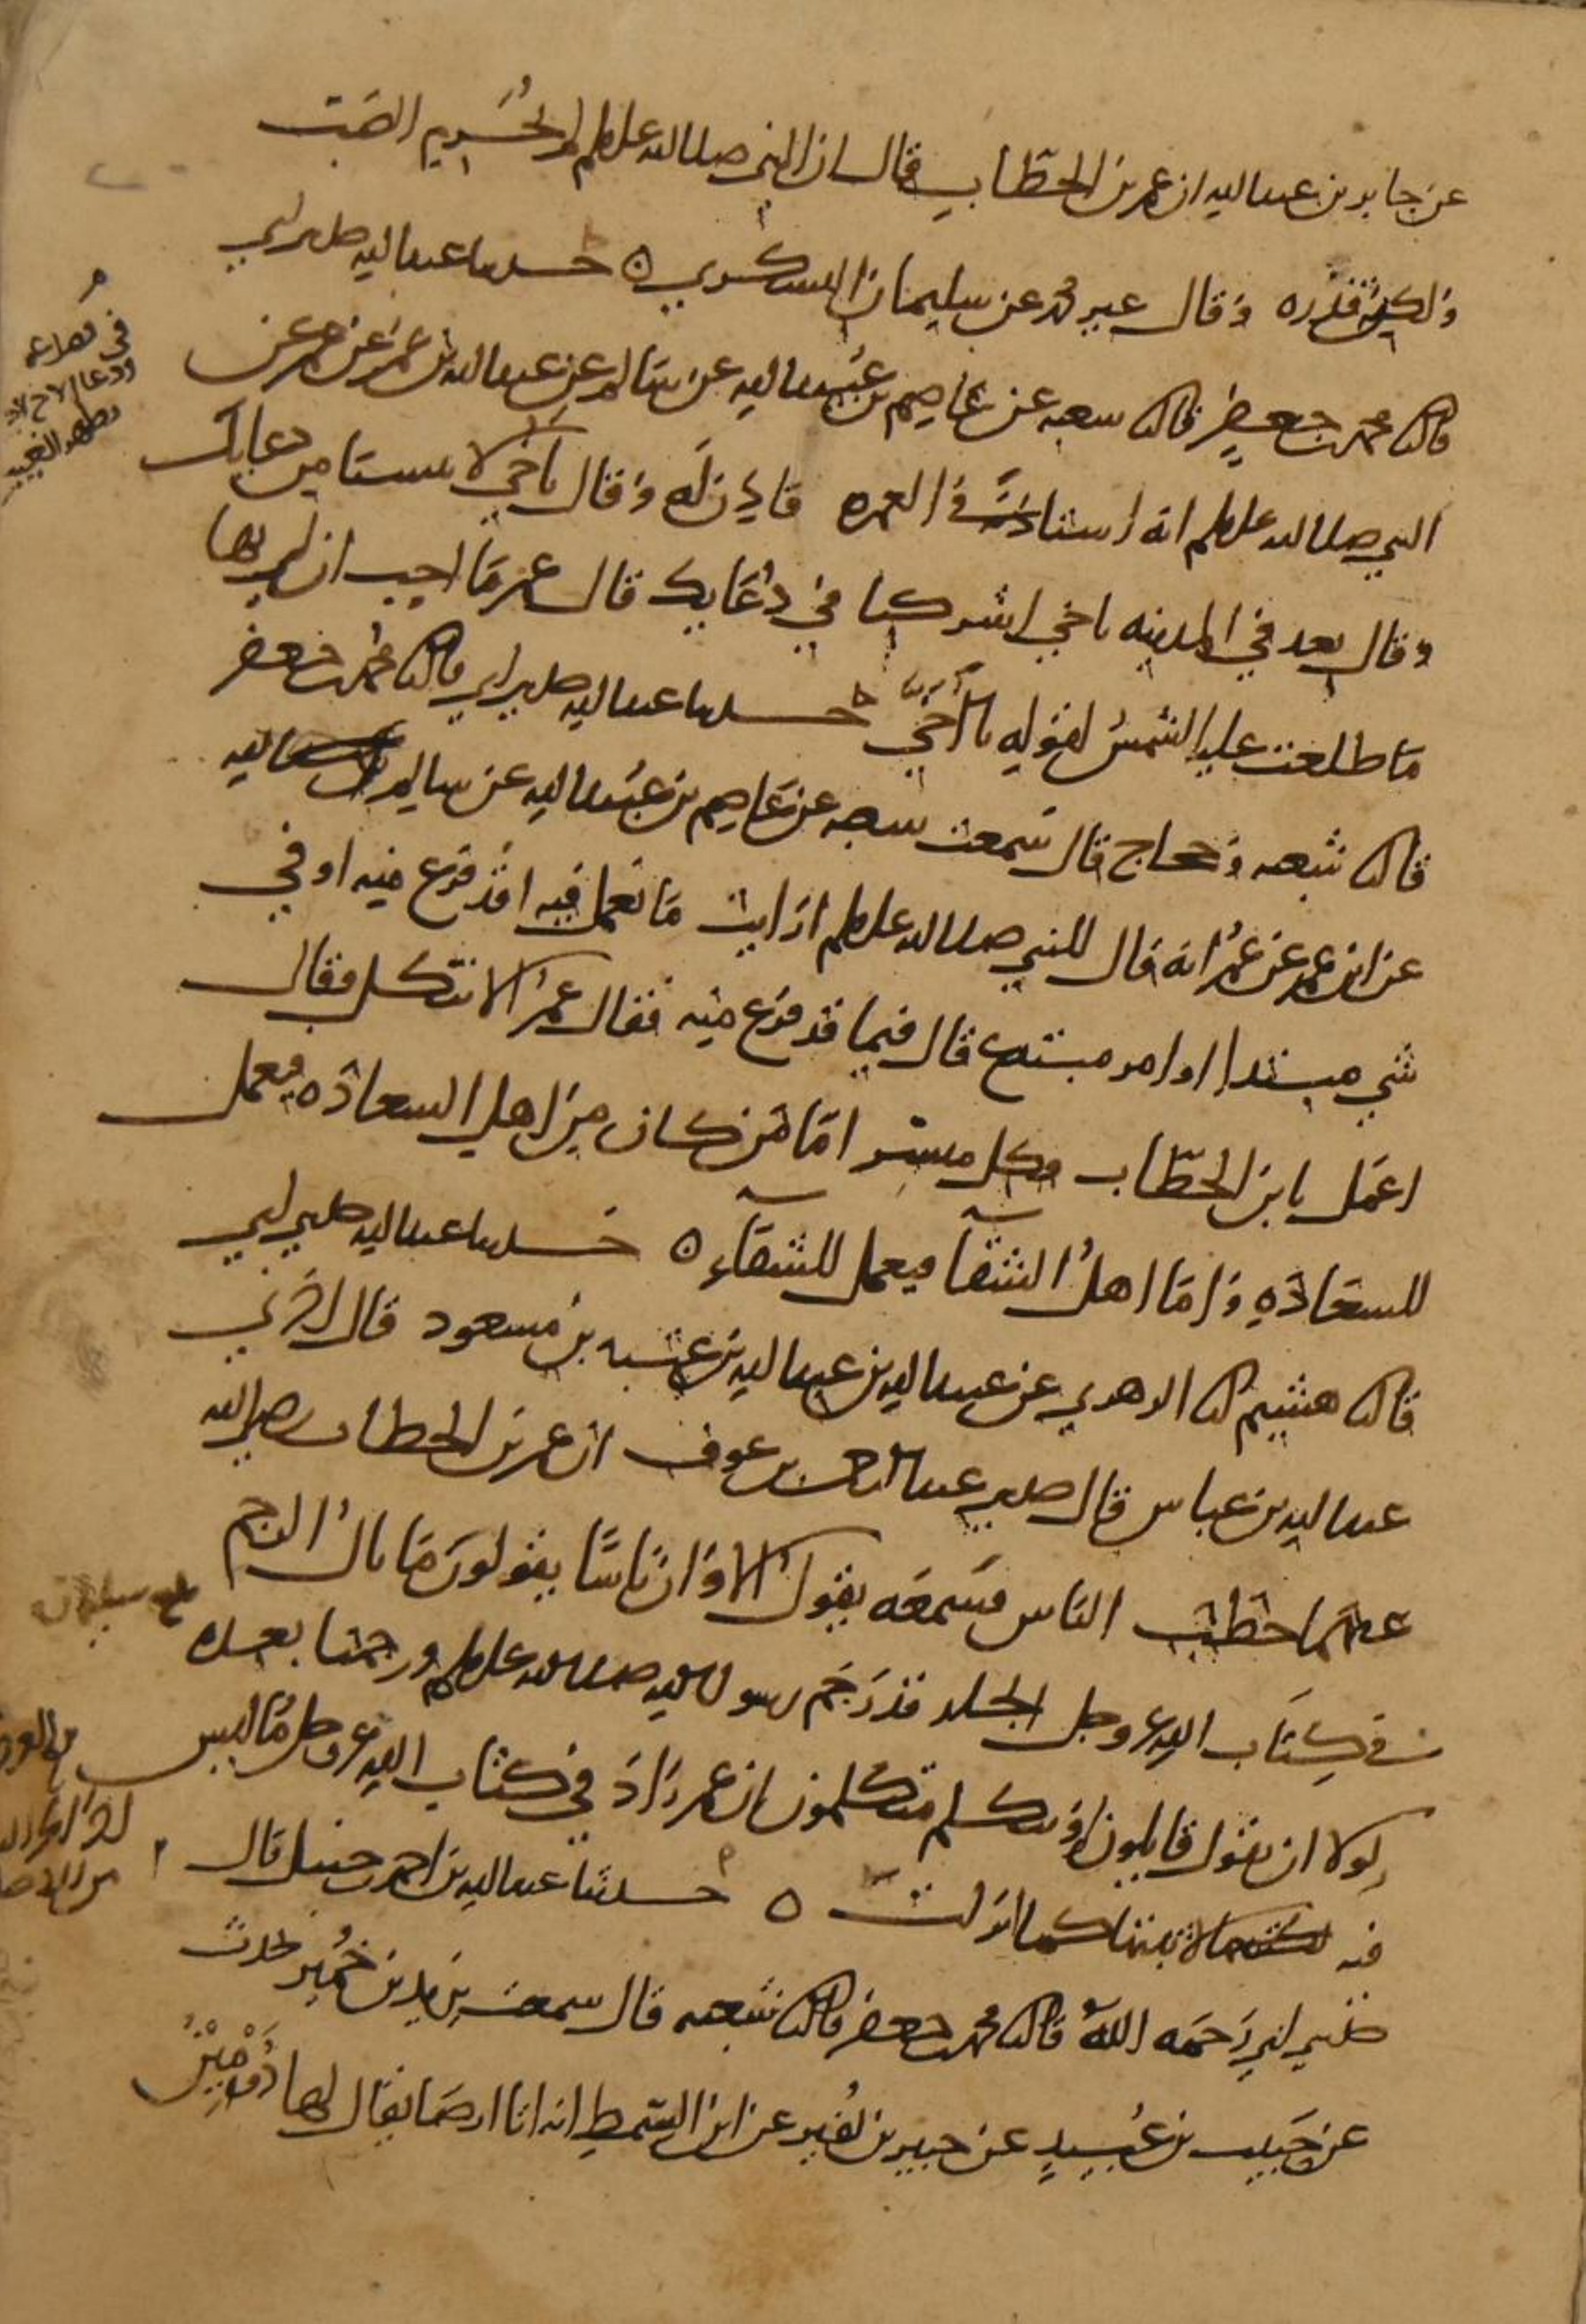 عن جابر بن عبد الله ان عمر بن الخطاب قال ان النبي صلى الله عليه وسلم لم يُحَرِم الضب
ولكن قذره وقال غير محمد عن سليمان اليشكري ه حدثنا عبد الله حدثني ابي
قال ثنا محمد بن جعفر قال ثنا شعبه عن عاصم بن عُبيد الله عن سالم عن عبد الله بن عمر عن عمر عن
النبي صلى الله عليه وسلم انه استاذنه في العمره فاذن له وقال يا اخي لا تنسنا من دعايك
وقال بعد في المدينه يا اخي اشركنا في دُعَايك قال عمر ما احب ان لي بها
ما طلعت عليه الشمسُ لقوله يا اخي حدثنا عبد الله حدثني ابي قال ثنا محمد بن جعفر
قال ثنا شعبه وحجاج قال سمعت شعبه عن عاصم بن عُبيد الله عن سالم
عن ابن عمر عن عمر انه قال للنبي صلى الله عليه وسلم ارايت ما نعمل فيه اقد فرغ منه او في
شي مبتدا او امر مبتدع قال فيما قد فرغ منه فقال عمر الا نتكل فقال
اعمل يا بن الخطّاب فكل ميسر اما من كان من اهل السعاده فيعمل
للسعادهِ واما اهلُ الشقآ فيعمل للشقآءِ ه حدثنا عبد الله حدثني ابي
قال ثنا هشيم ثنا الزهري عن عبيد الله بن عبد الله بن عتبه بن مسعود قال اخبرني
عبد الله بن عباس قال حدثني عبد الرحمن بن عوف ان عمر بن الخطاب رضي الله
عنهما خطب الناس فسمعه يقول الا وان ناسًا يقولون ما بال الرجم
في كتاب الله عز وجل الجلد قد رَجَم رسول الله صلى الله عليه وسلم ورجمنا بعده
لولا ان يقول قايلون او يتكلم متكلمون ان عمر زاد في كتاب الله عز وجل ما ليس
منه لاثبتها كما انزلت ه حدثنا عبد الله بن احمد بن حنبل قال
حدثني ابي رَحمَه الله قال ثنا محمد بن جعفر قال ثنا شعبه قال سمعت يزيد بن خُمَير يحدث
عن حَبيب بن عُبيدٍ عن جبير بن نُفير عن ابن السّمط انه اتا ارضًا يقال لها دُومِيْنُ